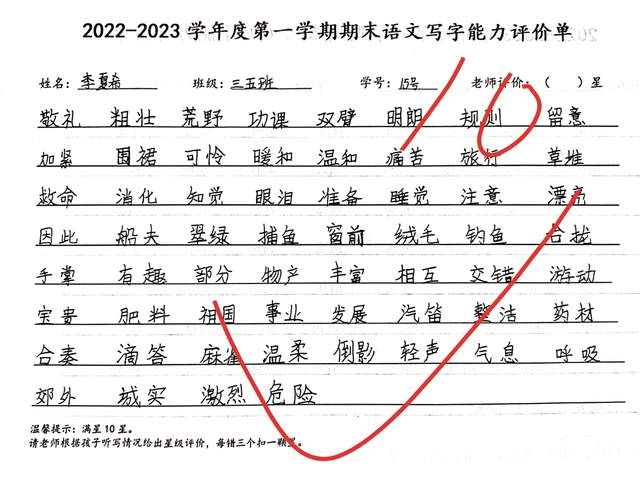 2022-2023学年度第一学期期末语文写字能力评价单
姓名：李夏希 班级：三五班 学号：15号 老师评价：（ ）星
10
敬礼 粗壮 荒野 功课 双臂 明朗 规则 留意
加紧 围裙 可怜 暖和 温和 痛苦 旅行 草堆
救命 消化 知觉 眼泪 准备 睡觉 注意 漂亮
因此 船夫 翠绿 捕鱼 窗前 绒毛 钓鱼 合拢
手掌 有趣 部分 物产 丰富 相互 交错 游动
宝贵 肥料 祖国 事业 发展 汽笛 整洁 药材
合奏 滴答 麻雀 温柔 倒影 轻声 气息 呼吸
郊外 城实 激烈 危险
温馨提示：满星10星。
请老师根据孩子听写情况给出星级评价，每错三个扣一颗星。